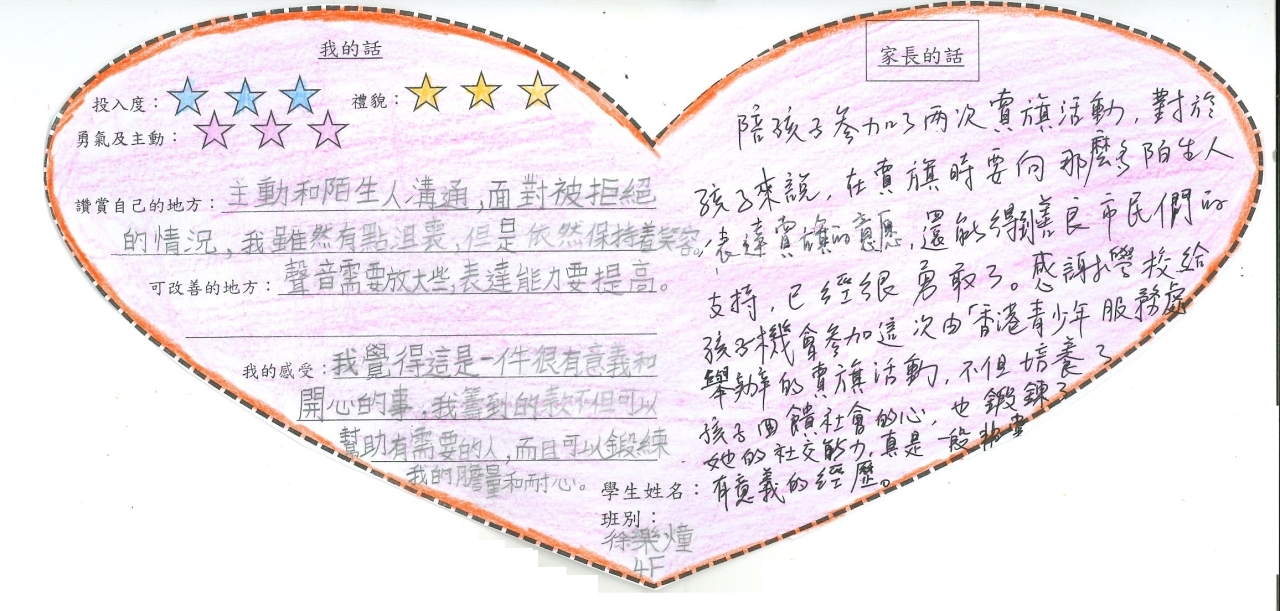 我的話
投入度：
禮貌：
勇氣及主動：
讚賞自己的地方：主動和陌生人溝通，面對被拒絕
的情況，我雖然有點沮喪，但是依然保持着笑容。
可改善的地方：聲音需要放大些，表達能力要提高。
我的感受：我覺得這是一件很有意義和
開心的事，我籌到的款不但可以
幫助有需要的人，而且可以鍛練
我的膽量和耐心。
家長的話
陪孩子參加了兩次賣旗活動，對於
孩子來說，在賣旗時要向那麼多陌生人
表達賣旗的意愿，還能得到善良市民們的
支持，已經很勇敢了。感謝學校給
孩子機會參加這次由「香港青少年服務處
舉辦的賣旗活動，不但培養了
孩子回饋社會的心，也鍛鍊了
她的社交能力，真是一段
有意義的經歷。
學生姓名：
班別：
徐樂㷘
4F